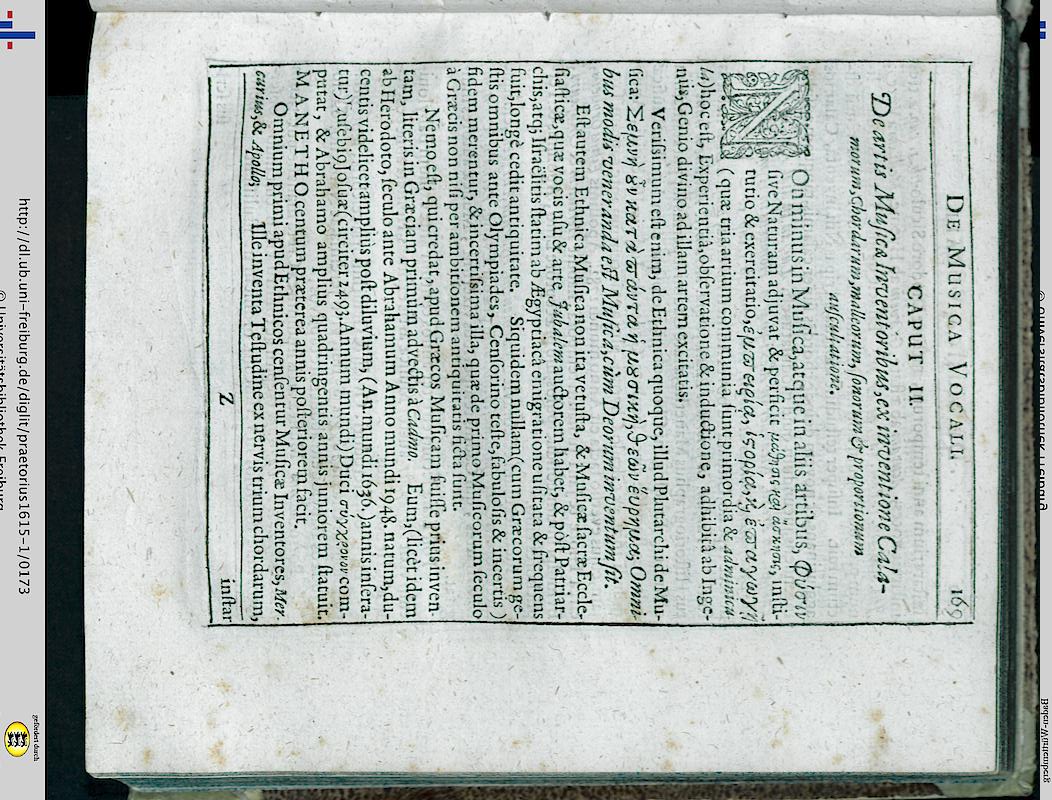 DE MUSICA VOCALI. 169
CAPUT II.
De artis Musicæ Inventoribus, ex inventione Cala-
morum, Chordarum, malleorum, sonorum & proportionum
auscultatione.
NOn minus in Musica, atque in aliis artibus, Φύσιν
sive Naturam adjuvat & perficit μάθησις καὶ ἄσκησις, insti-
tutio & exercitatio, ἐμπειρία, ἱστορία, & ἐπαγωγὴ
(quæ tria artium communia sunt primordia & adminicu
la) hoc est, Experientiâ, observatione & inductione, adhibitâ ab Inge-
niis, Genio divino ad illam artem excitatis.
Verissimum est enim, de Ethnica quoque, illud Plutarchi de Mu-
sica: Σεμνὴ ȣ̓ν κατὰ πάντα ἡ μȣσικὴ, θεῶν ἕυρημα; Omni
bus modis veneranda est Musica, cum Deorum inventum sit.
Est autem Ethnica Musica non ita vetusta, & Musicæ sacræ Eccle-
siasticæ, quæ vocis usu & arte Jubalem auctorem habet, & pòst Patriar-
chis, atq; Israëlitis statim ab Ægyptiacâ emigratione usitata & frequens
fuit, longè cedit antiquitate. Siquidem nullam (cum Græcorum ge-
stis omnibus ante Olympiades, Censorino teste, fabulosis & incertis)
fidem merentur, & incertissima illa, quæ de primo Musicorum seculo
à Græcis non nisi per ambitionem antiquitatis ficta sunt.
Nemo est, qui credat, apud Græcos, Musicam fuisse prius inven-
tam, literis in Græciam primùm advectis à Cadmo. Eum, (licèt idem
ab Herodoto, seculo ante Abrahamum Anno mundi 1948. natum, du-
centis videlicet amplius post diluvium, (An. mundi 1656.) annis infera-
tur) Eusebio Josuæ (circiter 2493. Annum mundi) Duci σύγχρονον com-
putat, & Abrahamo amplius quadringentis annis juniorem statuit.
MANETHO centum præterea annis posteriorem facit.
Omnium primi apud Ethnicos censentur Musicæ Inventores, Mer-
curius, & Apollo; Ille inventa Testudine ex nervis trium chordarum,
Z instar
http://dl.ub.uni-freiburg.de/diglit/praetorius1615-1/0173
© Universitätsbibliothek Freiburg
gefördert durch